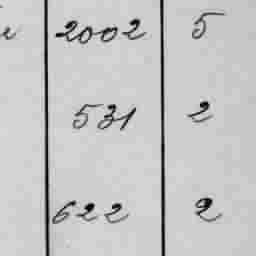 2002 5
531 2
622 2